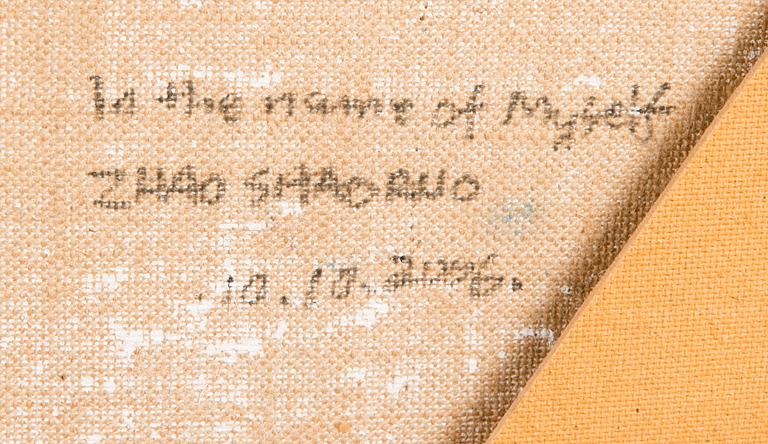 In the name of Myself
ZHAO SHAORUO
10.10.2006.